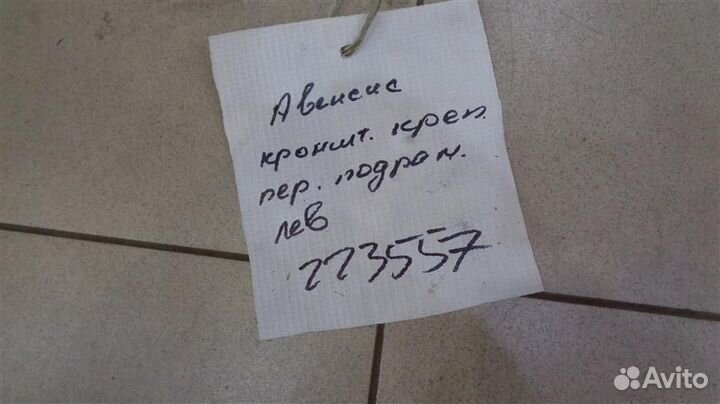 Авенсис
кроншт. креп.
пер. подрам.
лев
223557
Avito